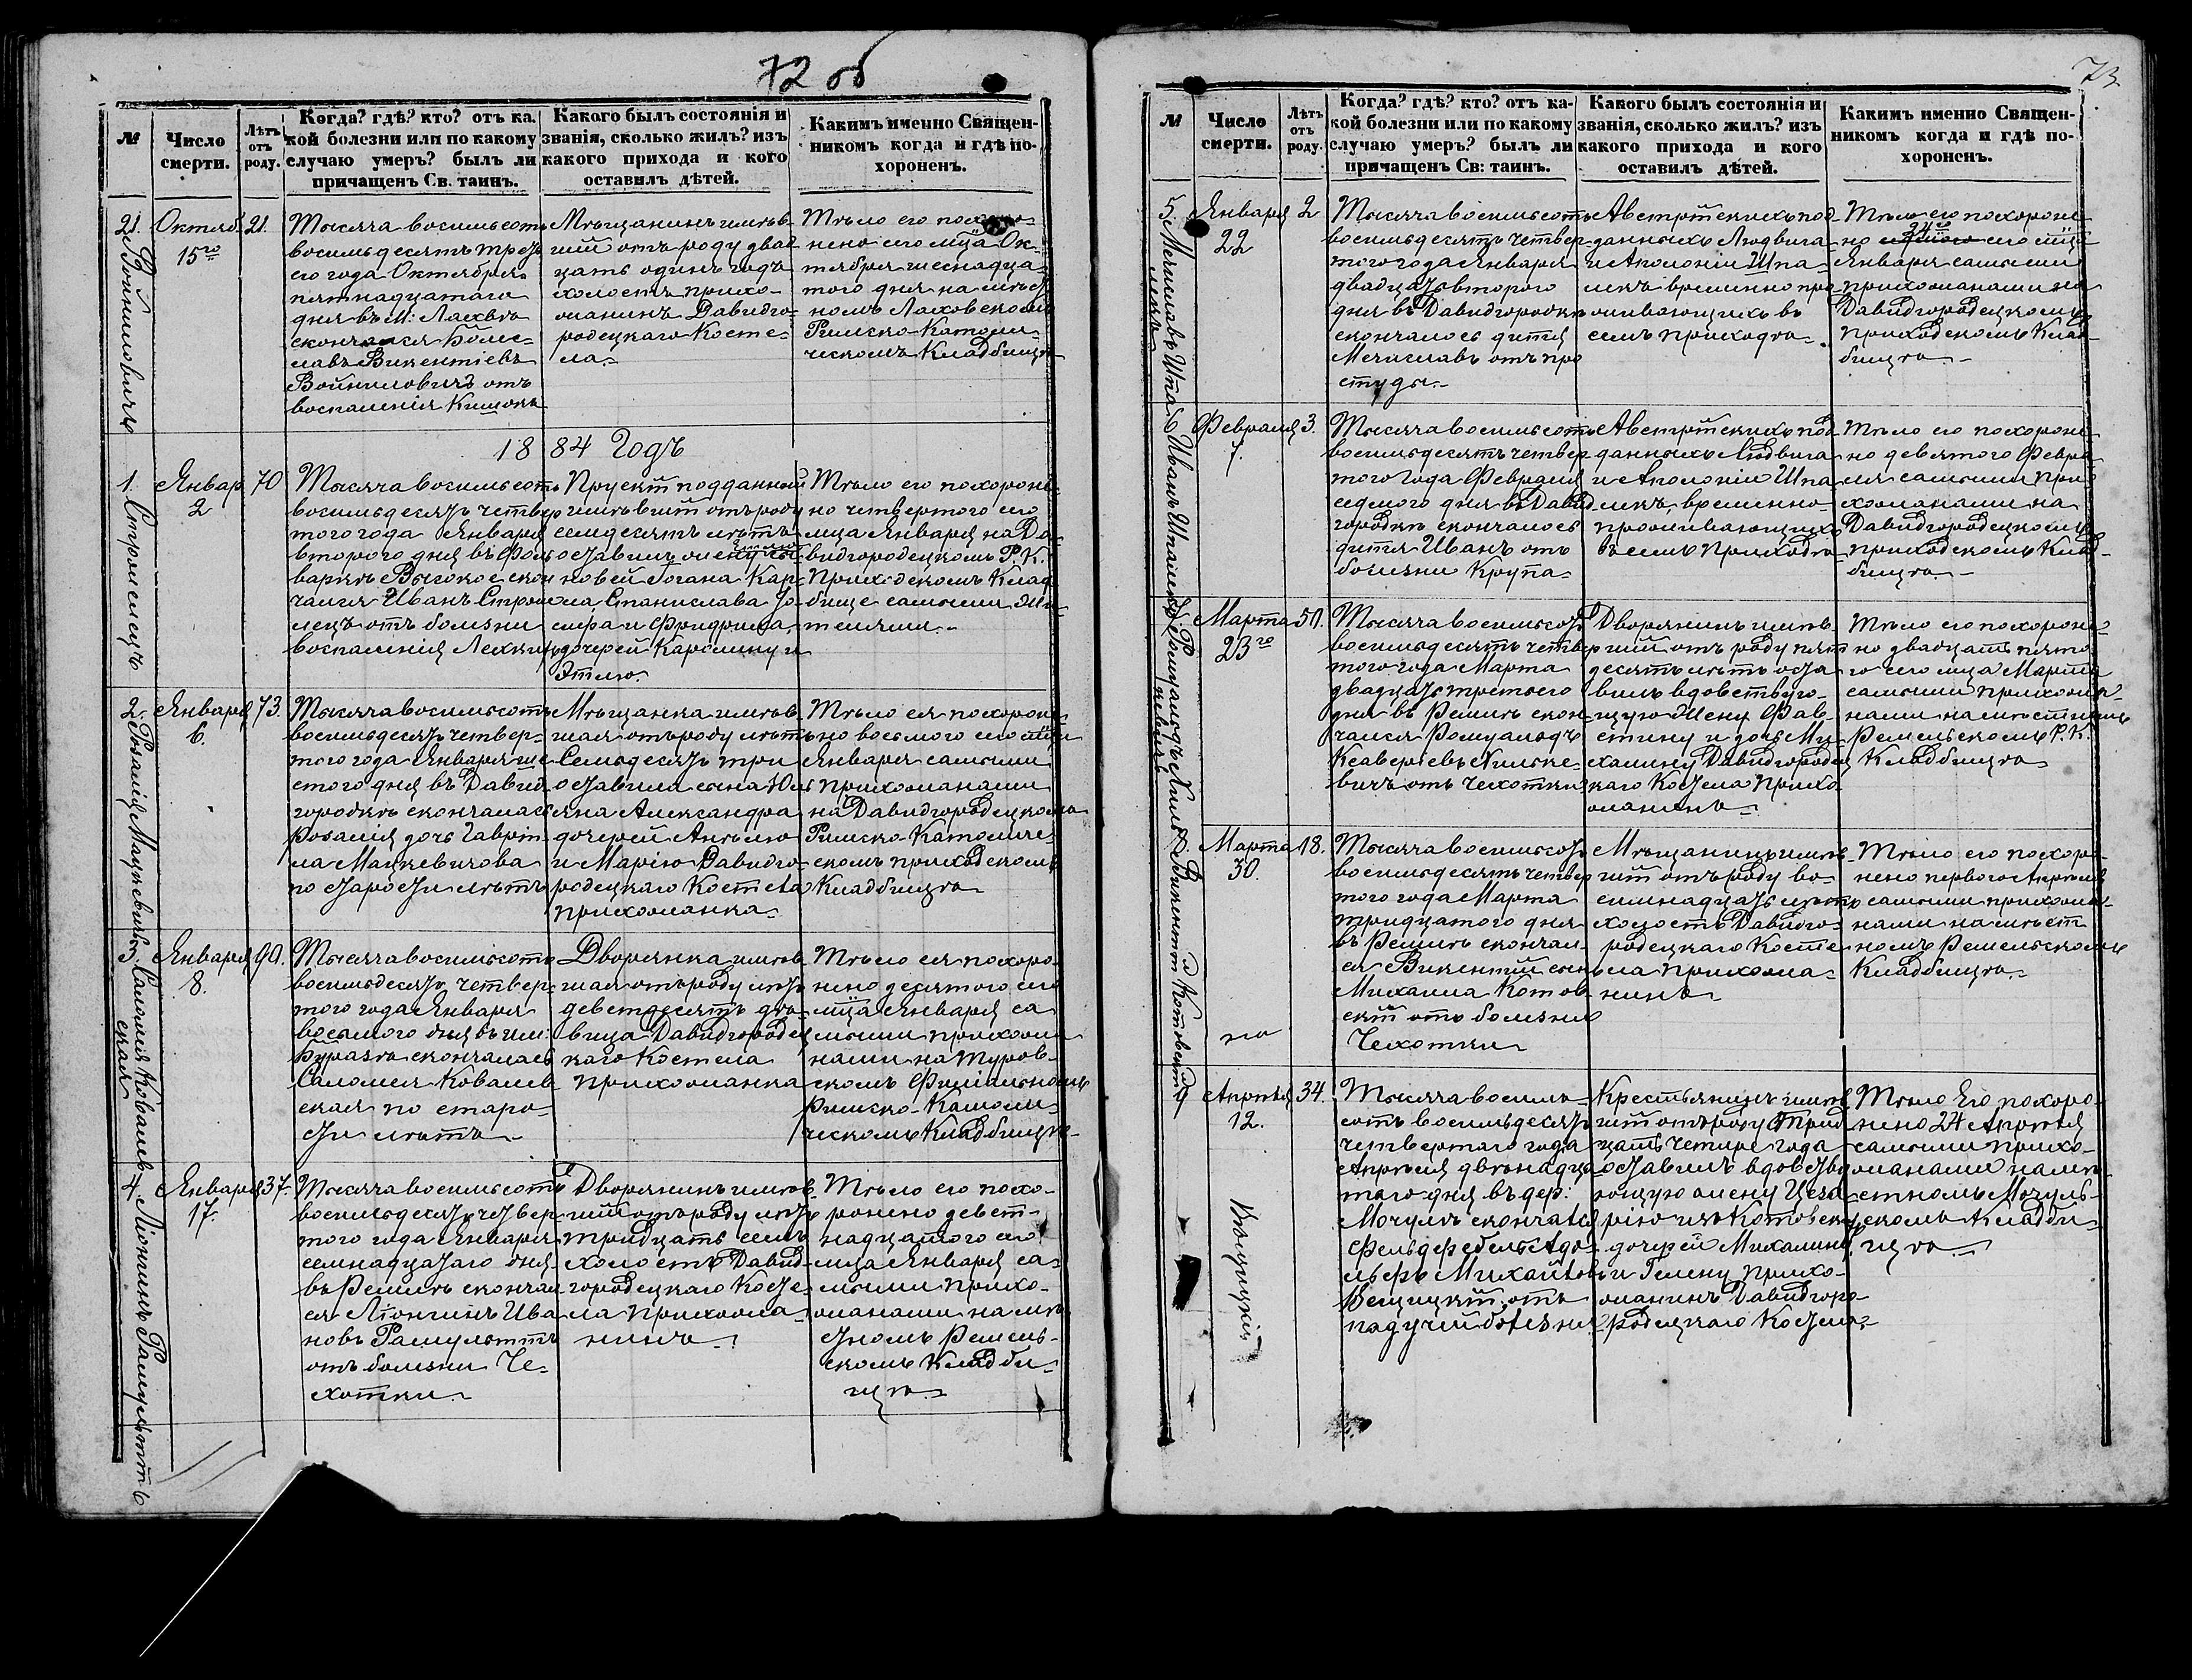 72 об
№
Число
смерти.
Лѣтъ
отъ
роду.
Когда? гдѣ? кто? отъ ка-
кой болезни или по какому
случаю умеръ? былъ ли
причащенъ Св. таинъ.
Какого былъ состоянія и
званія, сколько жилъ? изъ
какого прихода и кого
оставилъ дѣтей.
Какимъ именно Священ-
никомъ когда и гдѣ по-
хороненъ.
21.
Войниловичъ
Октяб.
15го
21.
Тысяча восемьсотъ
восемьдесятъ треть
его года Октября
пятнадцатаго
дня въ М: Лахвѣ
скончался Боле-
славъ Викентіевъ
Войниловичъ отъ
воспаленія Кишокъ
Мѣщанинъ имѣв-
шій отъ роду двад
цать одинъ годъ
холостъ прихо-
жанинъ Давидго-
родецкаго Косте-
ла.
Тѣло его похоро-
нено сего мца Ок-
тября шеснадца-
того дня на мѣст
номъ Лаховскомъ
Римско-Католи-
ческомъ Кладбищѣ
1884 Годъ
1.
Стромецъ
Январ
2
70
Тысяча восемьсотъ
восемьдесятъ четвер
того года Января
второго дня въ Фоль
варкѣ Высокое скон
чался Иванъ Стро
мецъ отъ болѣзни
воспаленія Легкихъ
Прускій подданный
имѣвшій отъ роду
семдесятъ лѣтъ
оставилъ жену сы
новей Іогана Кар-
ла, Станислава Іо-
сифа и Фридриха,
дочерей Каролину и
Этлю.
Тѣло его похороне-
но четвертого сего
мца Января на Да-
видгородецкомъ Р. К.
Приходскомъ Клад
бище самыми Жи-
телями.
2.
Розалія Мацкевичъ
Января
6.
73.
Тысяча восемьсотъ
восемьдесятъ четвер-
того года Января ше
стого дня въ Давид
городкѣ скончалась
Розалія дочь Гаврі-
ла Мацкевичова
по старости лѣтъ
Мѣщанка имѣв-
шая отъ роду лѣтъ
Семьдесятъ три
оставила сына Юль
яна Александра
дочерей Анелю
и Марію Давидго-
родецкаго Костела
прихожанка.
Тѣло ея похороне-
но восьмого сего мца
Января самыми
прихожанами
на Давидгородецкомъ
Римско-Католиче-
скомъ приходскомъ
Кладбищѣ
3.
Саломея Ковалев-
ская
Января
8.
90.
Тысяча восемьсотъ
восемьдесятъ четвер-
того года Января
восьмого дня въ им:
Буразѣ скончалась
Саломея Ковалев
ская по старо-
сти лѣтъ
Дворянка имѣв
шая отъ роду лѣтъ
деветдесятъ дѣ-
вица Давидгородец
каго Костела
прихожанка
Тѣло ея похоро-
нено десятого сего
мца Января са
мыми прихожа
нами на Туров-
скомъ Филіальномъ
Римско-Католи-
ческомъ Кладбищѣ
4.
Ліонгинъ Рамультъ
Января
17.
37.
Тысяча восемьсотъ
восемьдесятъ четвер
того года Января
семнадцатаго дня
въ Ремелѣ скончал
ся Ліонгинъ Ива
новъ Рамультъ
отъ болезни Че-
хотки
Дворянинъ имѣв
шій отъ роду лѣтъ
тридцать семь
холостъ Давид-
городецкаго Косте
ла прихожа-
нинъ.
Тѣло его похо-
ронено девет-
надцатого сего
мца Января са-
мыми прихо-
жанами на мѣ
стномъ Ремель-
скомъ Кладби-
щѣ
73
№
Число
смерти.
Лѣтъ
отъ
роду.
Когда? гдѣ? кто? отъ ка-
кой болезни или по какому
случаю умеръ? былъ ли
причащенъ Св: таинъ.
Какого былъ состоянія и
званія, сколько жилъ? изъ
какого прихода и кого
оставилъ дѣтей.
Какимъ именно Священ-
никомъ когда и гдѣ по-
хороненъ.
5.
Мечиславъ Шпа
лекъ
Января
22
2
Тысяча восемьсотъ
восемьдесятъ четвер-
того года Января
двадцать второго
дня въ Давидгородкѣ
скончалось дитя
Мечиславъ отъ про
студы.
Австрійскихъ под
данныхъ Людвига
и Аполоніи Шпа-
лекъ временно про
живающихъ въ
семъ приходѣ.
Тѣло его похороне-
но 24го сего мца
Января самыми
прихожанами на
Давидгородецкомъ
приходскомъ Клад-
бищѣ
6
Иванъ Шпалекъ
Февраля
7.
3.
Тысяча восемьсотъ
восемьдесятъ четвер
того года Февраля
седмого дня въ Давид
городкѣ скончалось
дитя Иванъ отъ
болѣзни Крупа
Австрійскихъ под
данныхъ Людвига
и Аполоніи Шпа
лекъ, временно
проживающихъ
въ семъ Приходѣ
Тѣло его похороне
но девятого Февра
ля самыми при
хожанами на
Давидгородецкомъ
приходскомъ Клад-
бищѣ
7.
Ромуальдъ
Марта
23го
50.
Тысяча восемьсотъ
восемьдесятъ четвер
того года Марта
двадцать третьего
дня въ Ремелѣ скон-
чался Ромуальдъ
Ксаверіевъ
отъ чехотки
Дворянинъ имѣв
шій отъ роду пять
десятъ лѣтъ оста
вилъ вдовствую-
щую Жену Фав-
стину и дочь Ми-
халину Давидгородец
каго Костела прихо
жанинъ
Тѣло его похороне-
но двадцать пято
го сего мца Марта
самыми прихожа-
нами на мѣстномъ
Ремельскомъ Р. К.
Кладбищѣ
8.
Викентій Котовскій
Марта
30.
18.
Тысяча восемьсотъ
восемьдесятъ четвер
того года Марта
тридцатого дня
въ Ремелѣ скончал-
ся Викентій сынъ
Михаила Котов
скій отъ болѣзни
Чехотки
Мѣщанинъ имѣв-
шій отъ роду во-
семнадцать лѣтъ
холостъ Давидго-
родецкаго Косте
ла прихожа-
нинъ
Тѣло его похоро-
нено первого Апрѣля
самыми прихожа-
нами на мѣст
номъ Ремельскомъ
Кладбищѣ.
9
Апрѣля
12.
34.
Тысяча восемь-
сотъ восемьдесятъ
четвертаго года
Апрѣля двѣнадца
таго дня въ дер:
Мочулѣ скончался
Фельдфебель Адо-
льфъ Михайловъ
отъ
падучей болезни
Крестьянинъ имѣв
шій отъ роду Трид
цать четыре года
оставилъ вдовству
ющую жену Цеза
рію изъ Котовскихъ
дочерей Михалину
и Гелену прихо-
жанинъ Давидгоро-
родецкаго Костела
Тѣло Его похоро-
нено 24 Апрѣля
самыми прихо-
жанами на мѣ
стномъ Мочуль-
скомъ Кладби-
щѣ